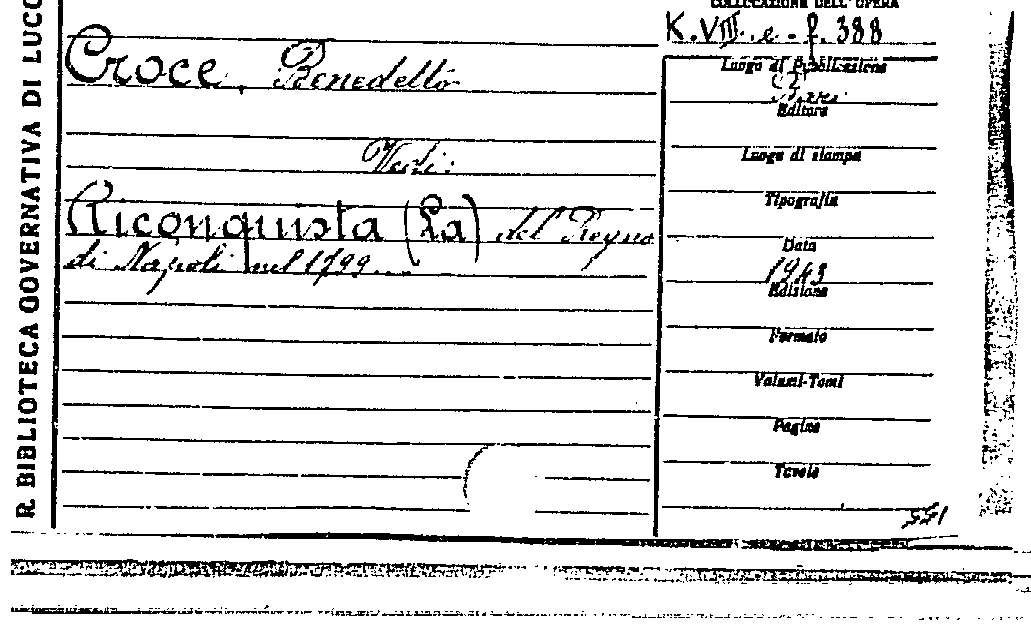 R. BIBLIOTECA GOVERNATIVA DI LUCC
COLLOCAZIONE DELL'OPERA
K.VIII. e. f. 388
Croce, Benedetto
Vedi:
Riconquista (La) del Regno
di Napoli nel 1799...
Luogo di Pubblicazione
Bari
Editore
Luogo di stampa
Tipografia
Data
1943
Edizione
Formato
Volumi-Tomi
Pagine
Tavole
551